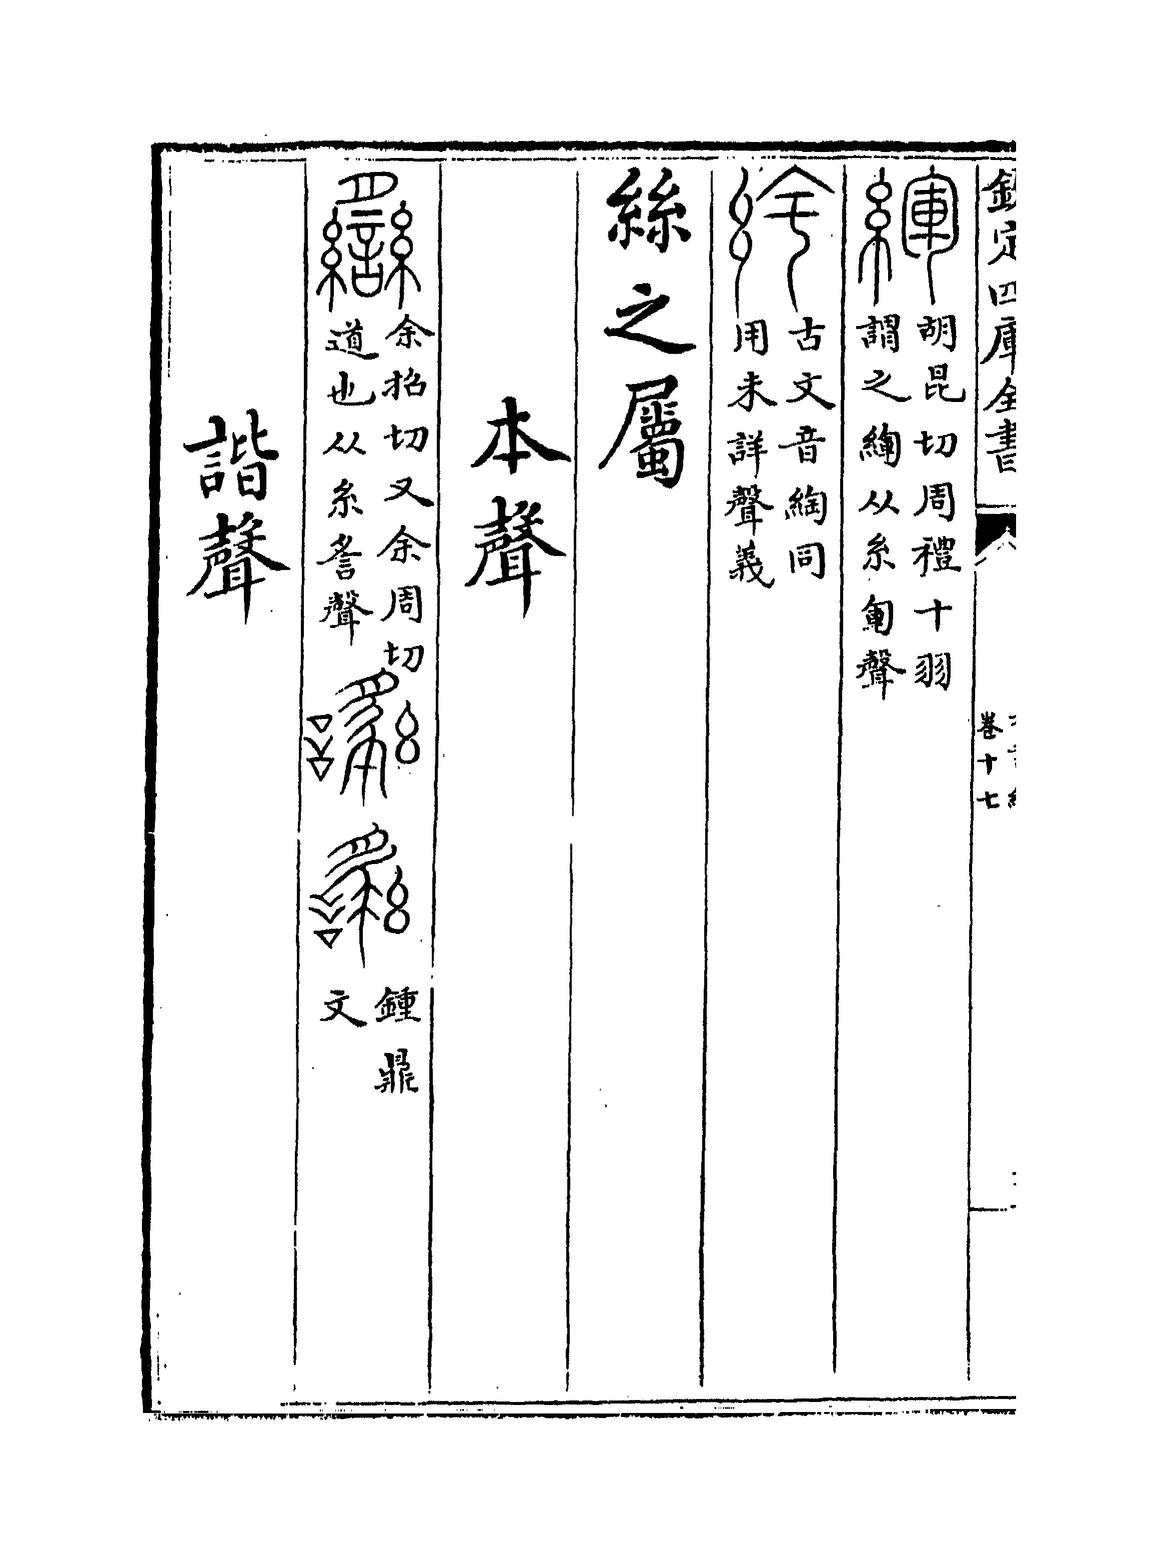 欽定四庫全書
卷十七
胡昆切周禮十羽
謂之緷从糸軍聲
古文音綯同
用未詳聲義
絲之屬
本聲
余招切又余周切
道也从糸䚻聲
鍾鼎
文
諧聲